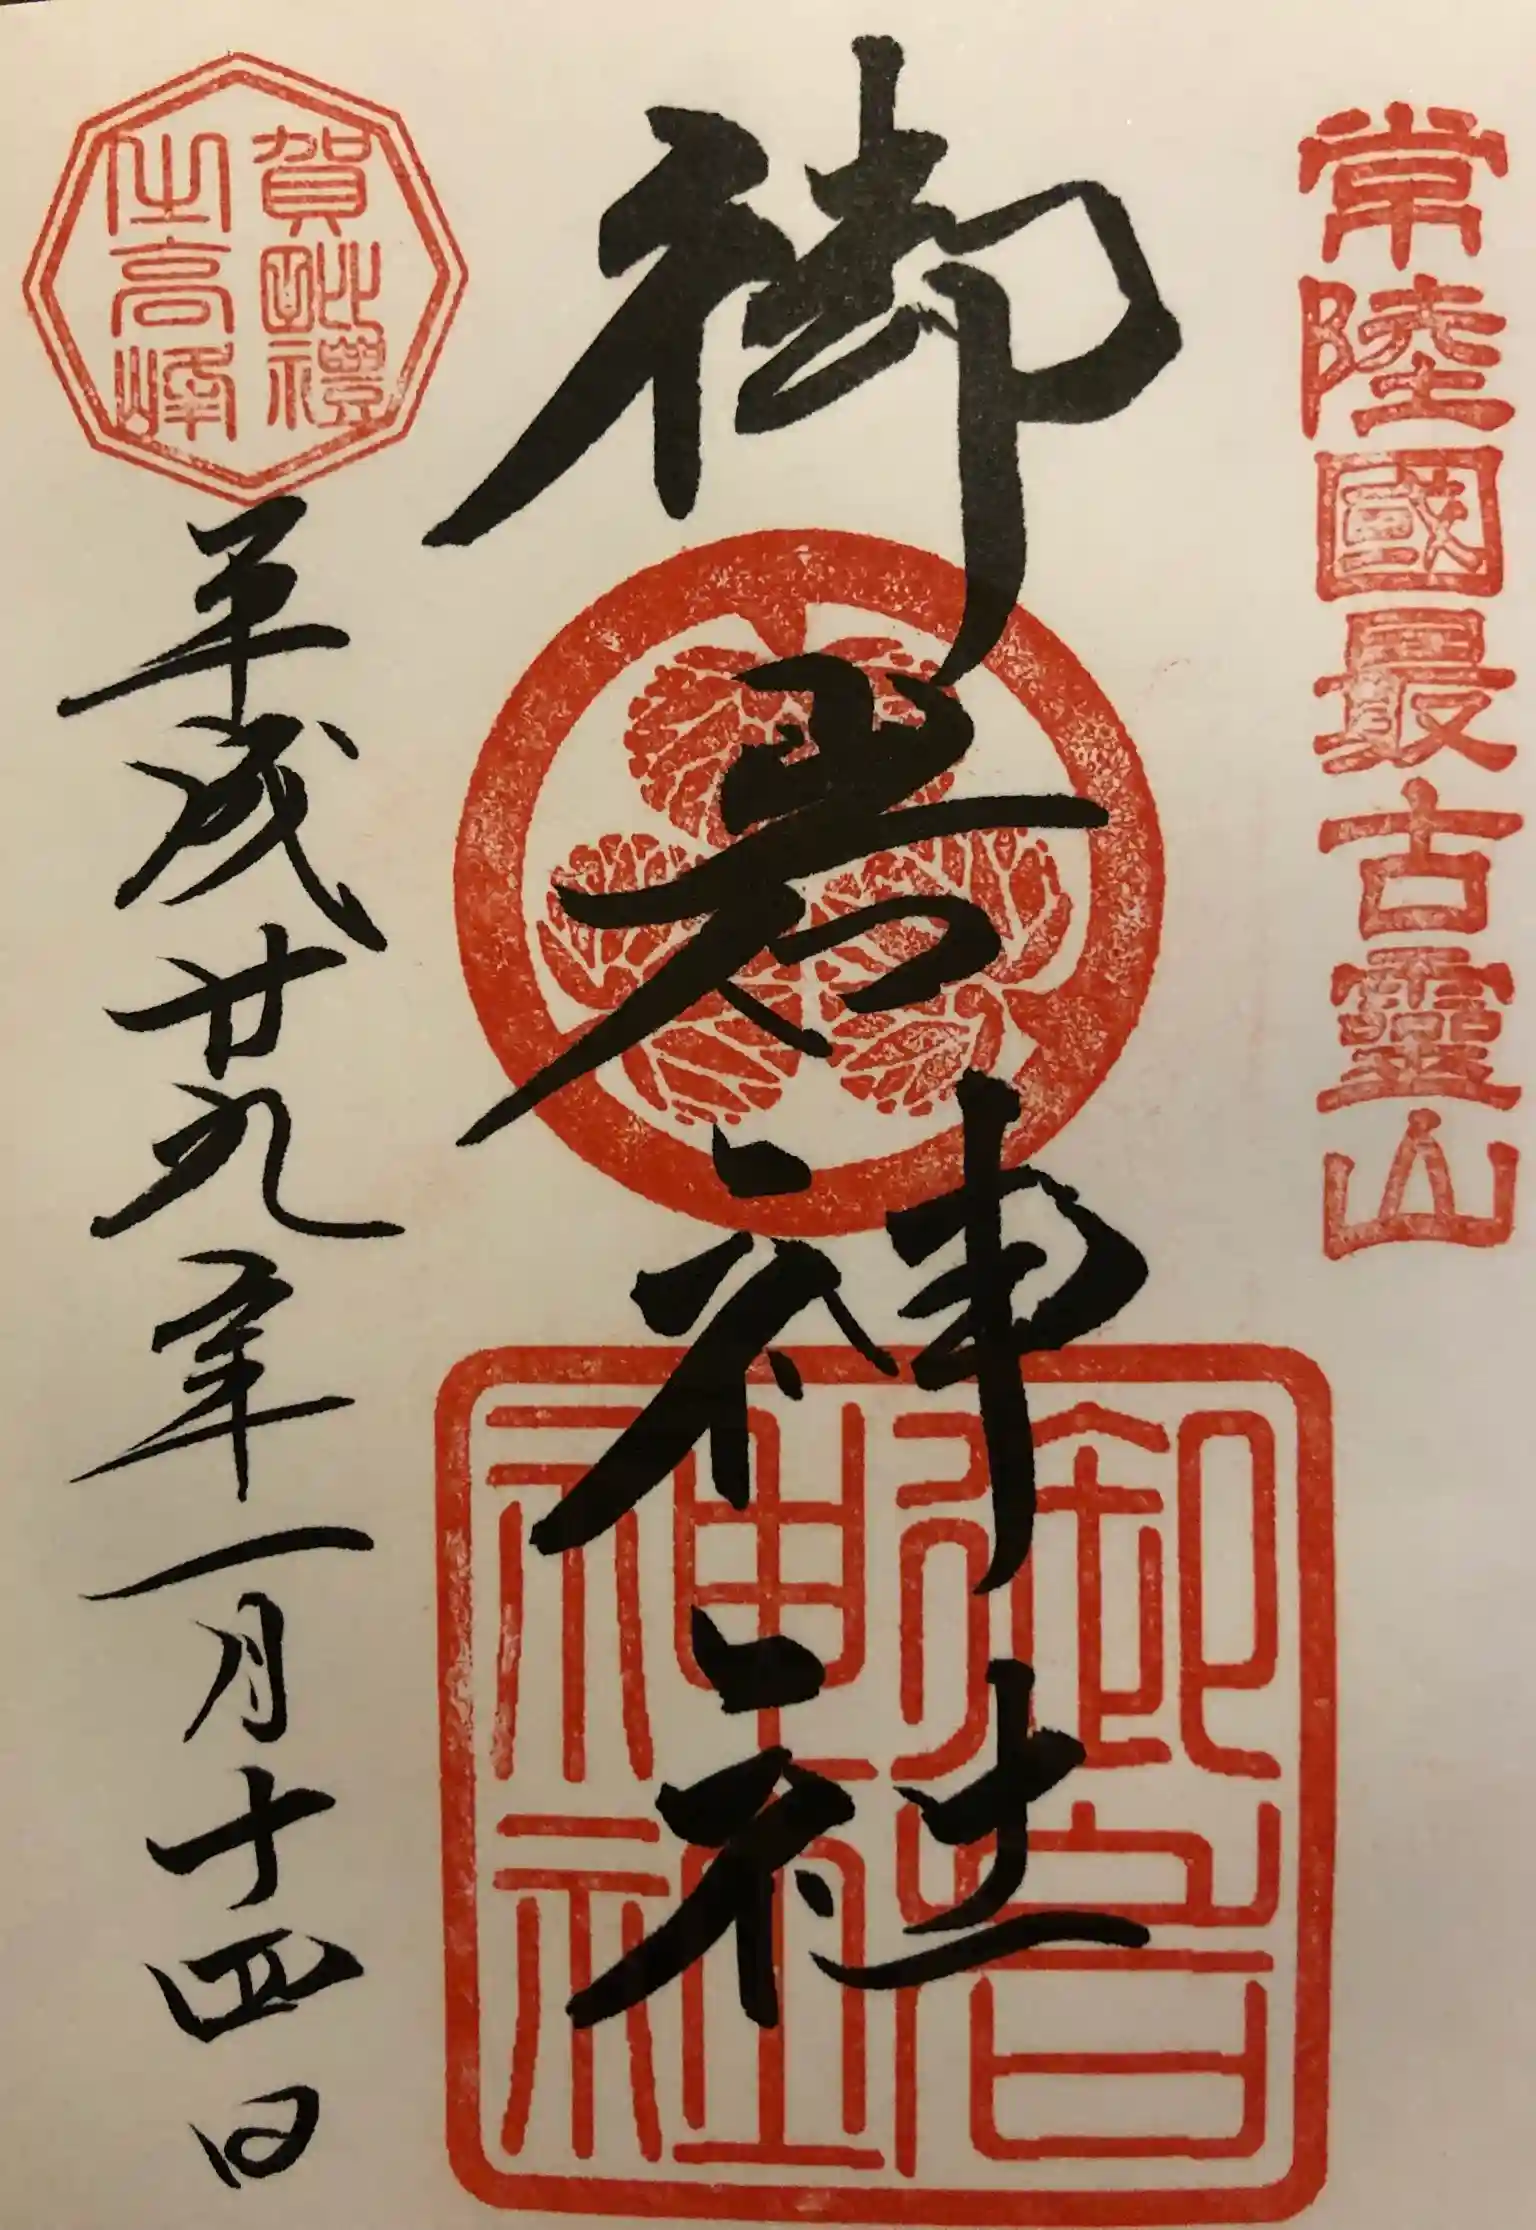 常陸國最古靈山
御岩神社
御岩神社
賀毗禮
之高峰
平成廿九年一月十四日